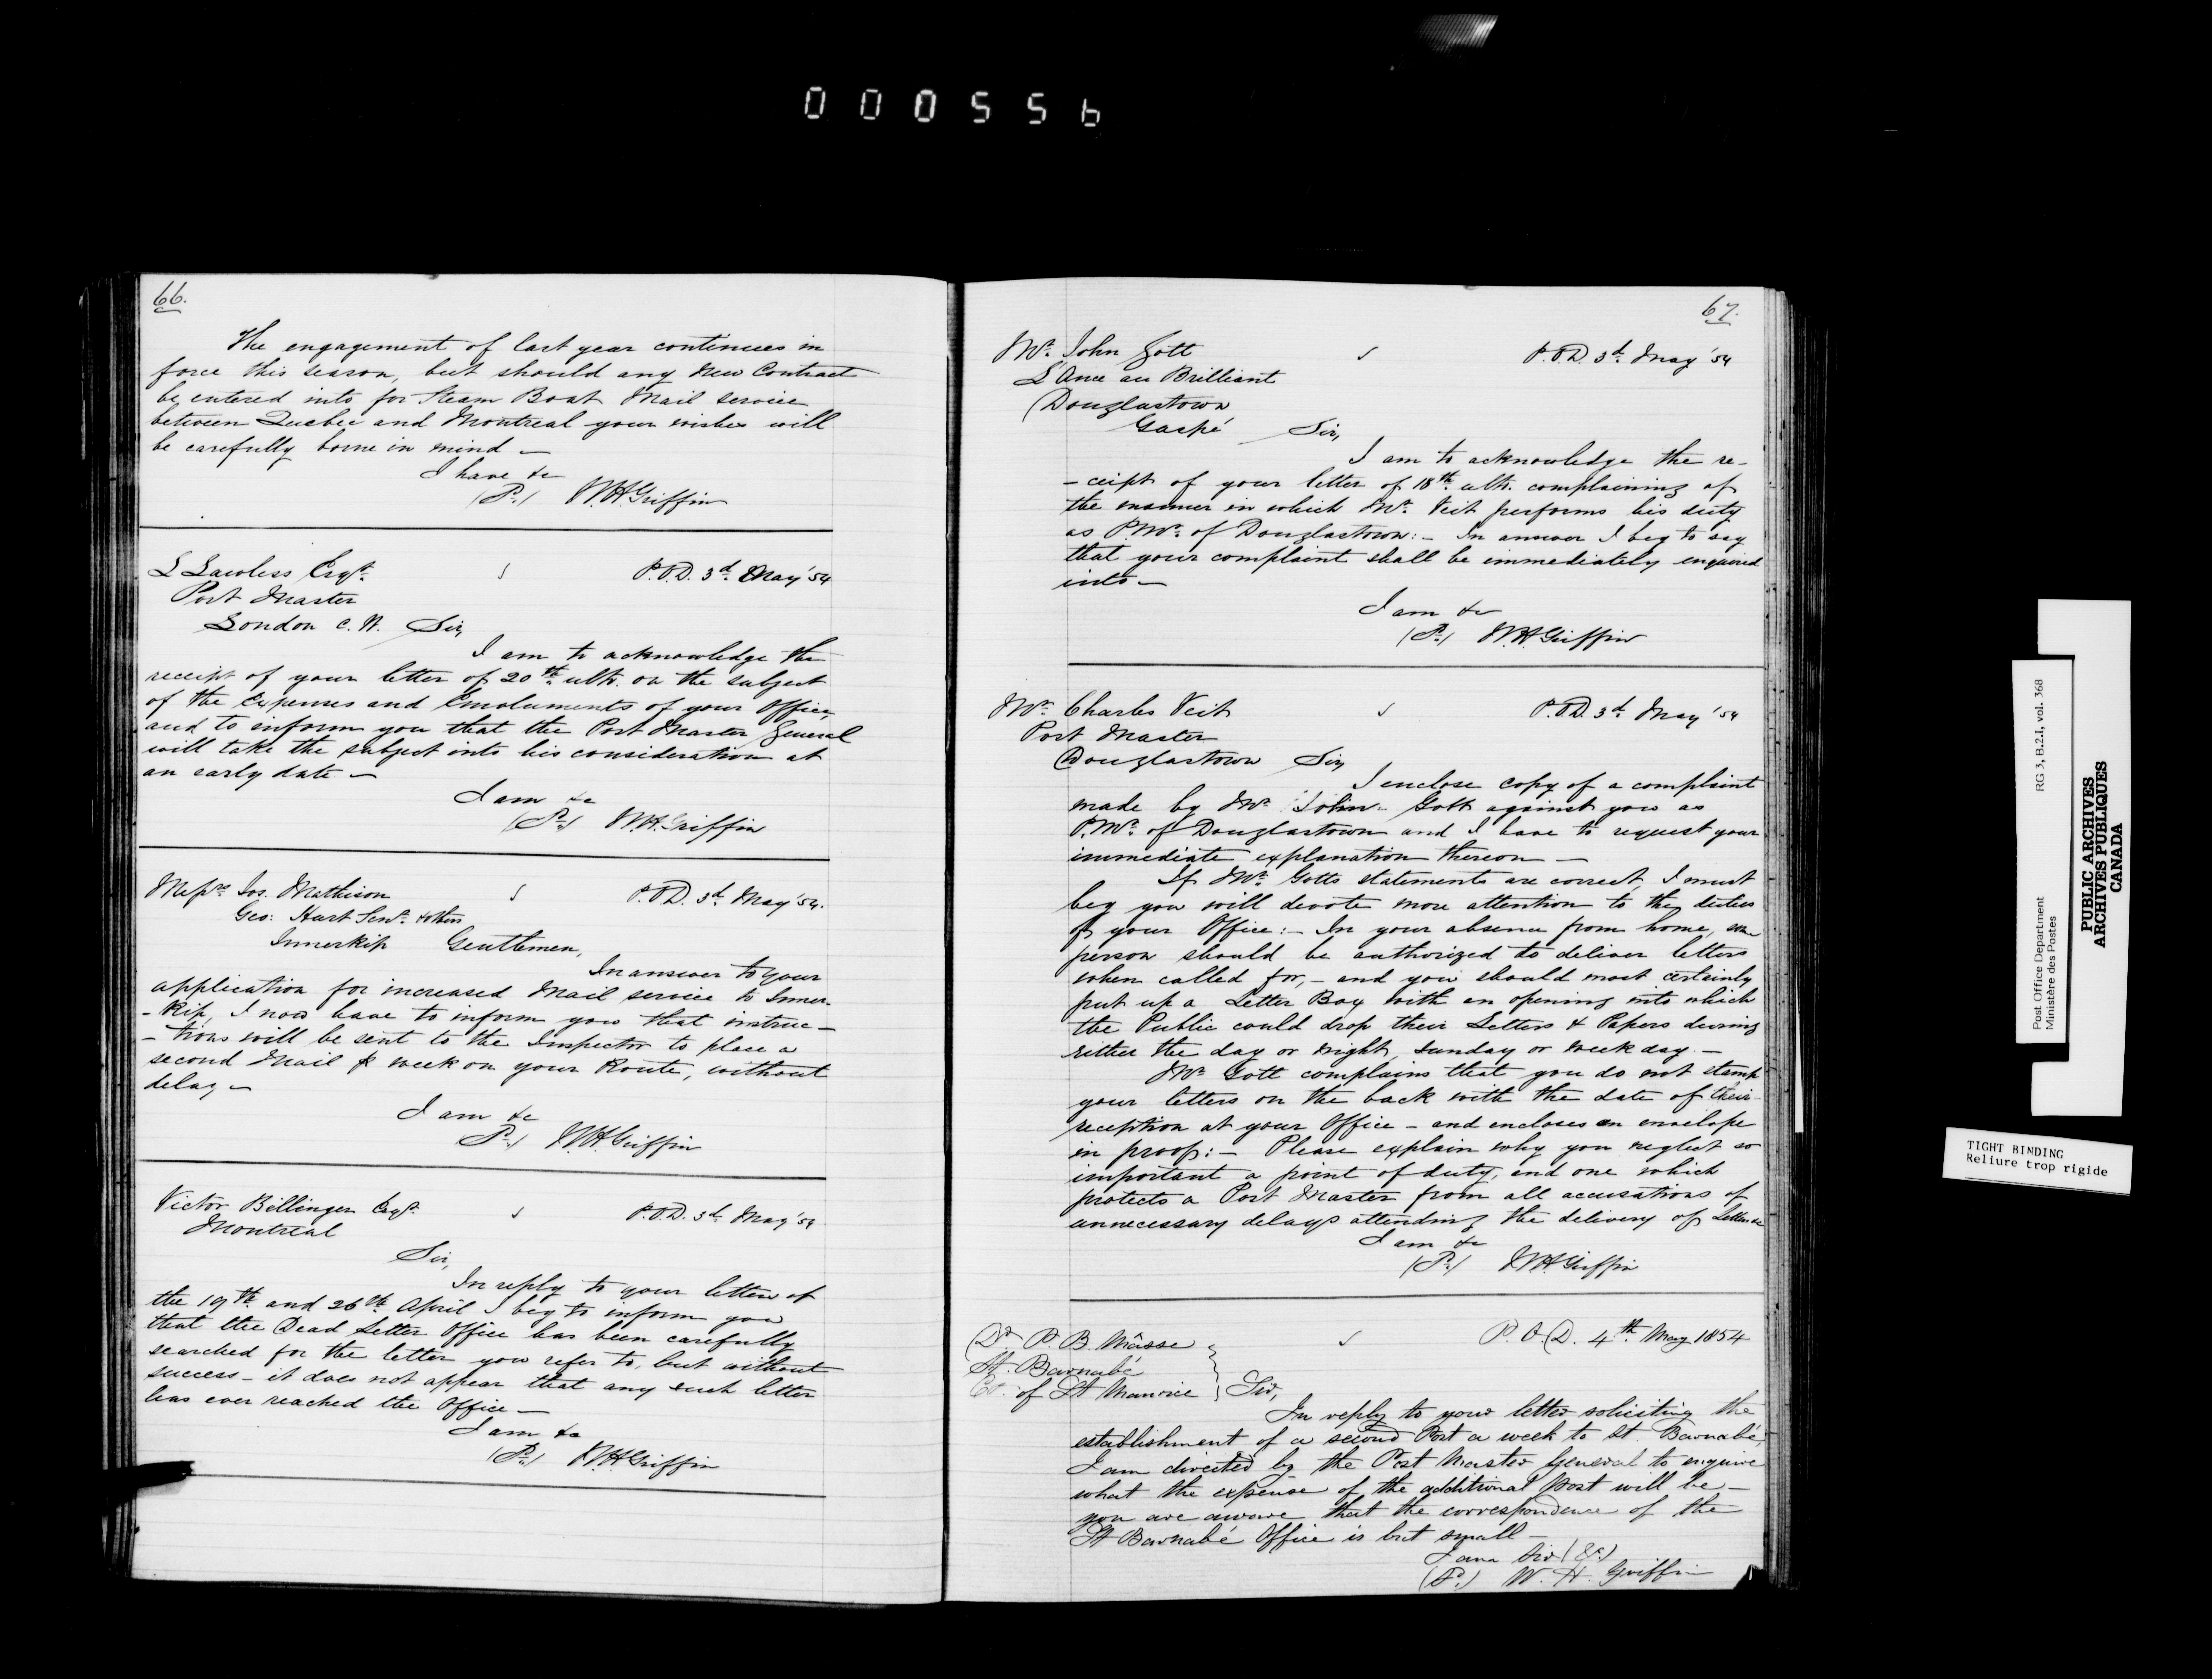 000556
66.
The engagement of last year continues in
force this season, but should any New Contract
be entered into for Steam Boat Mail service
between Quebec and Montreal your wishes will
be carefully borne in mind —
I have &c
(Sd.) W.H. Griffin
L Lawless Esqr.
P.O.D. 3d. May '54
Post Master
London C.W. Sir,
I am to acknowledge the
receipt of your letter of 20th. ulto. on the subject
of the Expenses and Emoluments of your Office,
and to inform you that the Post Master General
will take the subject into his consideration at
an early date —
I am &c
(Sd.) W.H. Griffin
Messrs Jos. Mathison
P.O.D. 3d. May '54.
Geo: Hart Senr. & others
Innerkip Gentlemen,
In answer to your
application for increased Mail service to Inner-
-Kip, I now have to inform you that instruc-
-tions will be sent to the Inspector to place a
second Mail p week on your Route, without
delay —
I am &c
Sd.) W.H. Griffin
Victor Bellinger Esqr.
P.O.D. 3d. May '54
Montreal
Sir,
In reply to your letters of
the 19th. and 26th. April I beg to inform you
that the Dead Letter Office has been carefully
searched for the letter you refer to, but without
success - it does not appear that any such letter
has ever reached the Office —
I am &c
(Sd.) W.H. Griffin
67.
Mr. John Gott
P.O.D. 3d. May '54
L'Ance au Brilliant
Douglastown
Gaspé Sir,
I am to acknowledge the re-
-ceipt of your letter of 18th. ulto. complaining of
the manner in which Mr. Veit performs his duty
as P.Mr. of Douglastown: - In answer I beg to say
that your complaint shall be immediately enquired
into —
I am &c
(Sd.) W.H. Griffin
Mr. Charles Veit
P.O.D. 3d. May '54
Post Master
Douglastown Sir,
I enclose copy of a complaint
made by Mr. John Gott against you as
P.Mr. of Douglastown and I have to request your
immediate explanation thereon —
If Mr. Gotts statements are correct, I must
beg you will devote more attention to the duties
of your Office: - In your absence from home, some
person should be authorized to deliver letters
when called for, - and you should most certainly
put up a Letter Box with an opening into which
the Public could drop their Letters & Papers during
either the day or night, Sunday or week day. —
Mr. Gott complains that you do not stamp
your letters on the back with the date of their
reception at your Office - and encloses an envelope
in proof: - Please explain why you neglect so
important a point of duty, and one which
protects a Post Master from all accusations of
unnecessary delays attending the delivery of Letters &c
I am &c
(Sd.) W.H. Griffin
Dr. P. B. Mâsse
P.O.D. 4th. May 1854
St. Barnabé
Co. of St Maurice Sir,
In reply to your letter soliciting the
establishment of a second Post a week to St. Barnabé,
I am directed by the Post Master General to enquire
what the expense of the additional post will be —
you are aware that the correspondence of the
St Barnabé Office is but small —
I am Sir (&c)
(Sd.) W. H. Griffin
Post Office Department RG 3, B.2.I, vol. 368
Ministère des Postes
PUBLIC ARCHIVES
ARCHIVES PUBLIQUES
CANADA
TIGHT BINDING
Reliure trop rigide